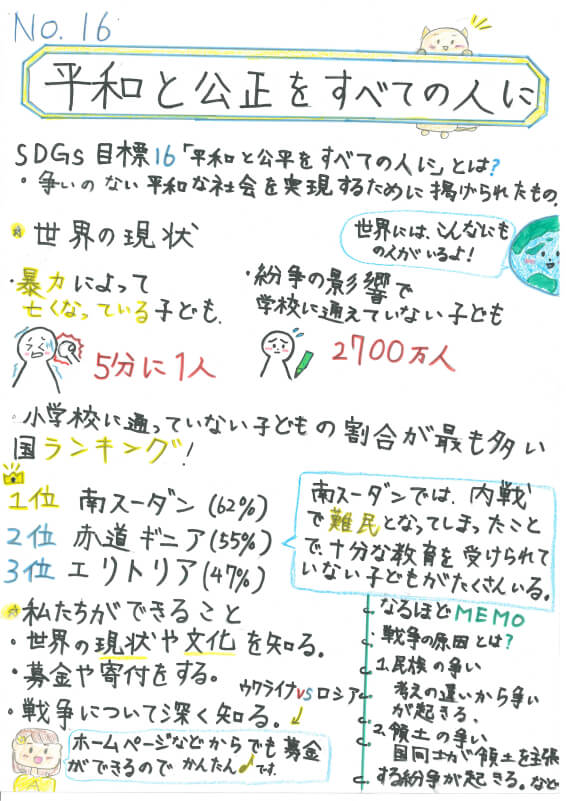 NO. 16
平和と公正をすべての人に
SDGs 目標16「平和と公平をすべての人に」とは?
・争いのない平和な社会を実現するために掲げられたもの。
世界の現状
世界には、こんなにも
の人がいるよ！
・暴力によって
亡くなっている子ども。
5分に1人
・紛争の影響で
学校に通えていない子ども
2700万人
・小学校に通っていない子どもの割合が最も多い
国ランキング！
1位 南スーダン(62%)
2位 赤道ギニア(55%)
3位 エリトリア(47%)
南スーダンでは、内戦
で難民となってしまったこと
で、十分な教育を受けられて
いない子どもがたくさんいる。
私たちができること
・世界の現状や文化を知る。
・募金や寄付をする。
ウクライナvsロシア
・戦争について深く知る。
ホームページなどからでも募金
ができるのでかんたん♪です。
なるほどMEMO
・戦争の原因とは?
1.民族の争い
考えの違いから争い
が起きる。
2.領土の争い
国同士が領土を主張
する紛争が起きる。など